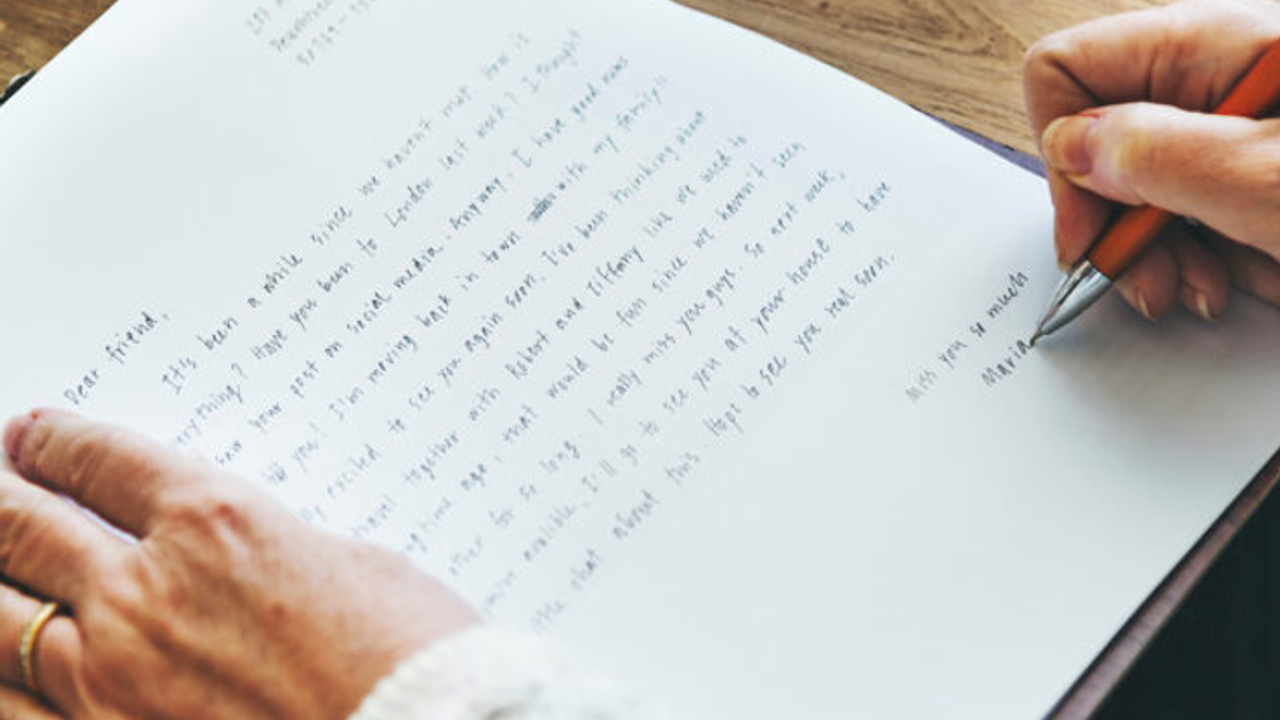 Dear friend,
It's been a while since we haven't met. How is
everything? Have you been to London last week? I thought
saw your post on social media. Anyway, I have good news
you! I'm moving back in town with my family!
excited to see you again soon. I've been thinking about
travel together with Robert and Tiffany like we used to
time ago, that would be fun since we haven't seen
other for so long. I really miss you guys. So next week,
I'll go to see you at your house to have
chat about this. Hope to see you real soon.
Miss you so much
Maria